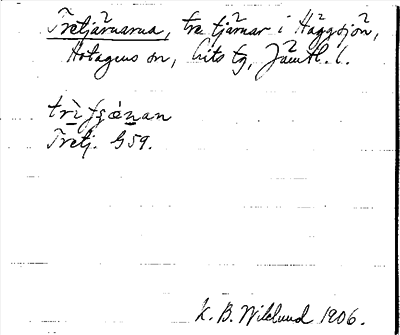 Tretjärnarna, tre tjärnar i Häggsjön,
Hotagens sn, hits tg, Jämtl. l.
Tretj. G59.
K. B. Wiklund 1906.